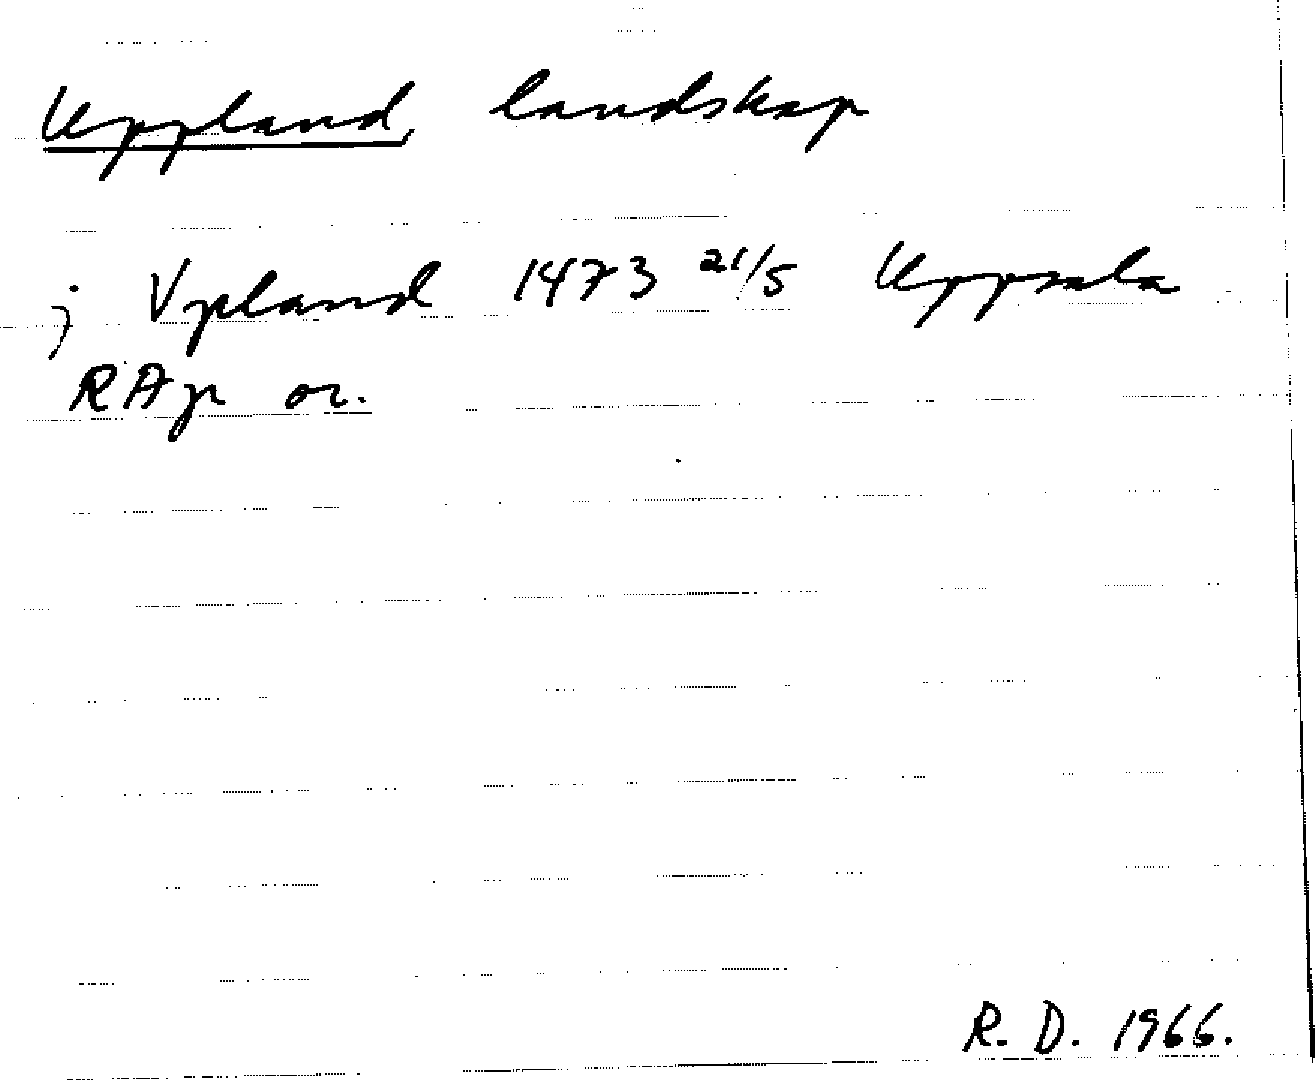 Uppland, landskap
j Vpland 1473 21/5 Uppsala
RAp or.
R. D. 1966.